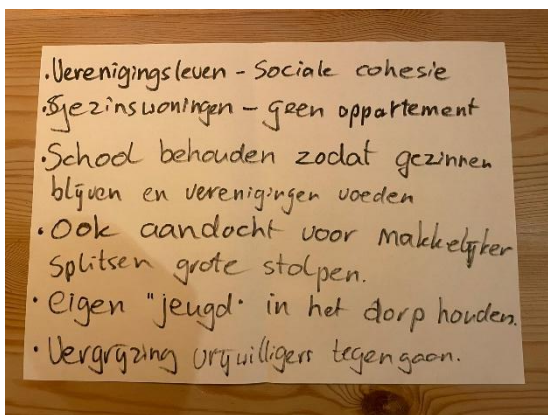 ·Verenigingsleven - Sociale cohesie
·Gezinswoningen - geen appartement
·School behouden zodat gezinnen
blijven en verenigingen voeden
·Ook aandacht voor makkelijker
splitsen grote stolpen.
·eigen "jeugd" in het dorp houden.
·Vergrijzing vrijwilligers tegengaan.